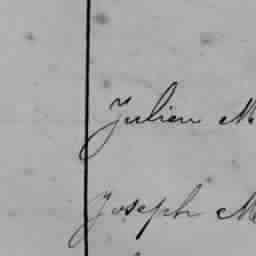 Julien M
Joseph M